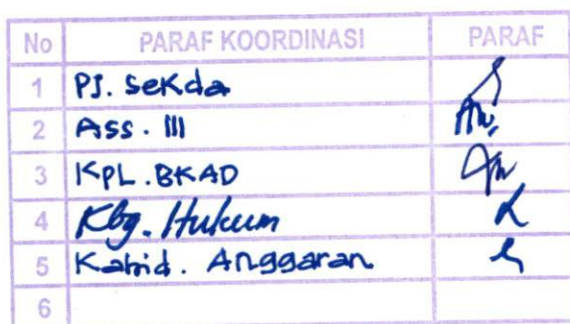 No PARAF KOORDINASI PARAF
1 PJ. Sekda
2 Ass. III
3 KPL. BKAD
4 Kbg. Hukum
5 Kabid. Anggaran
6